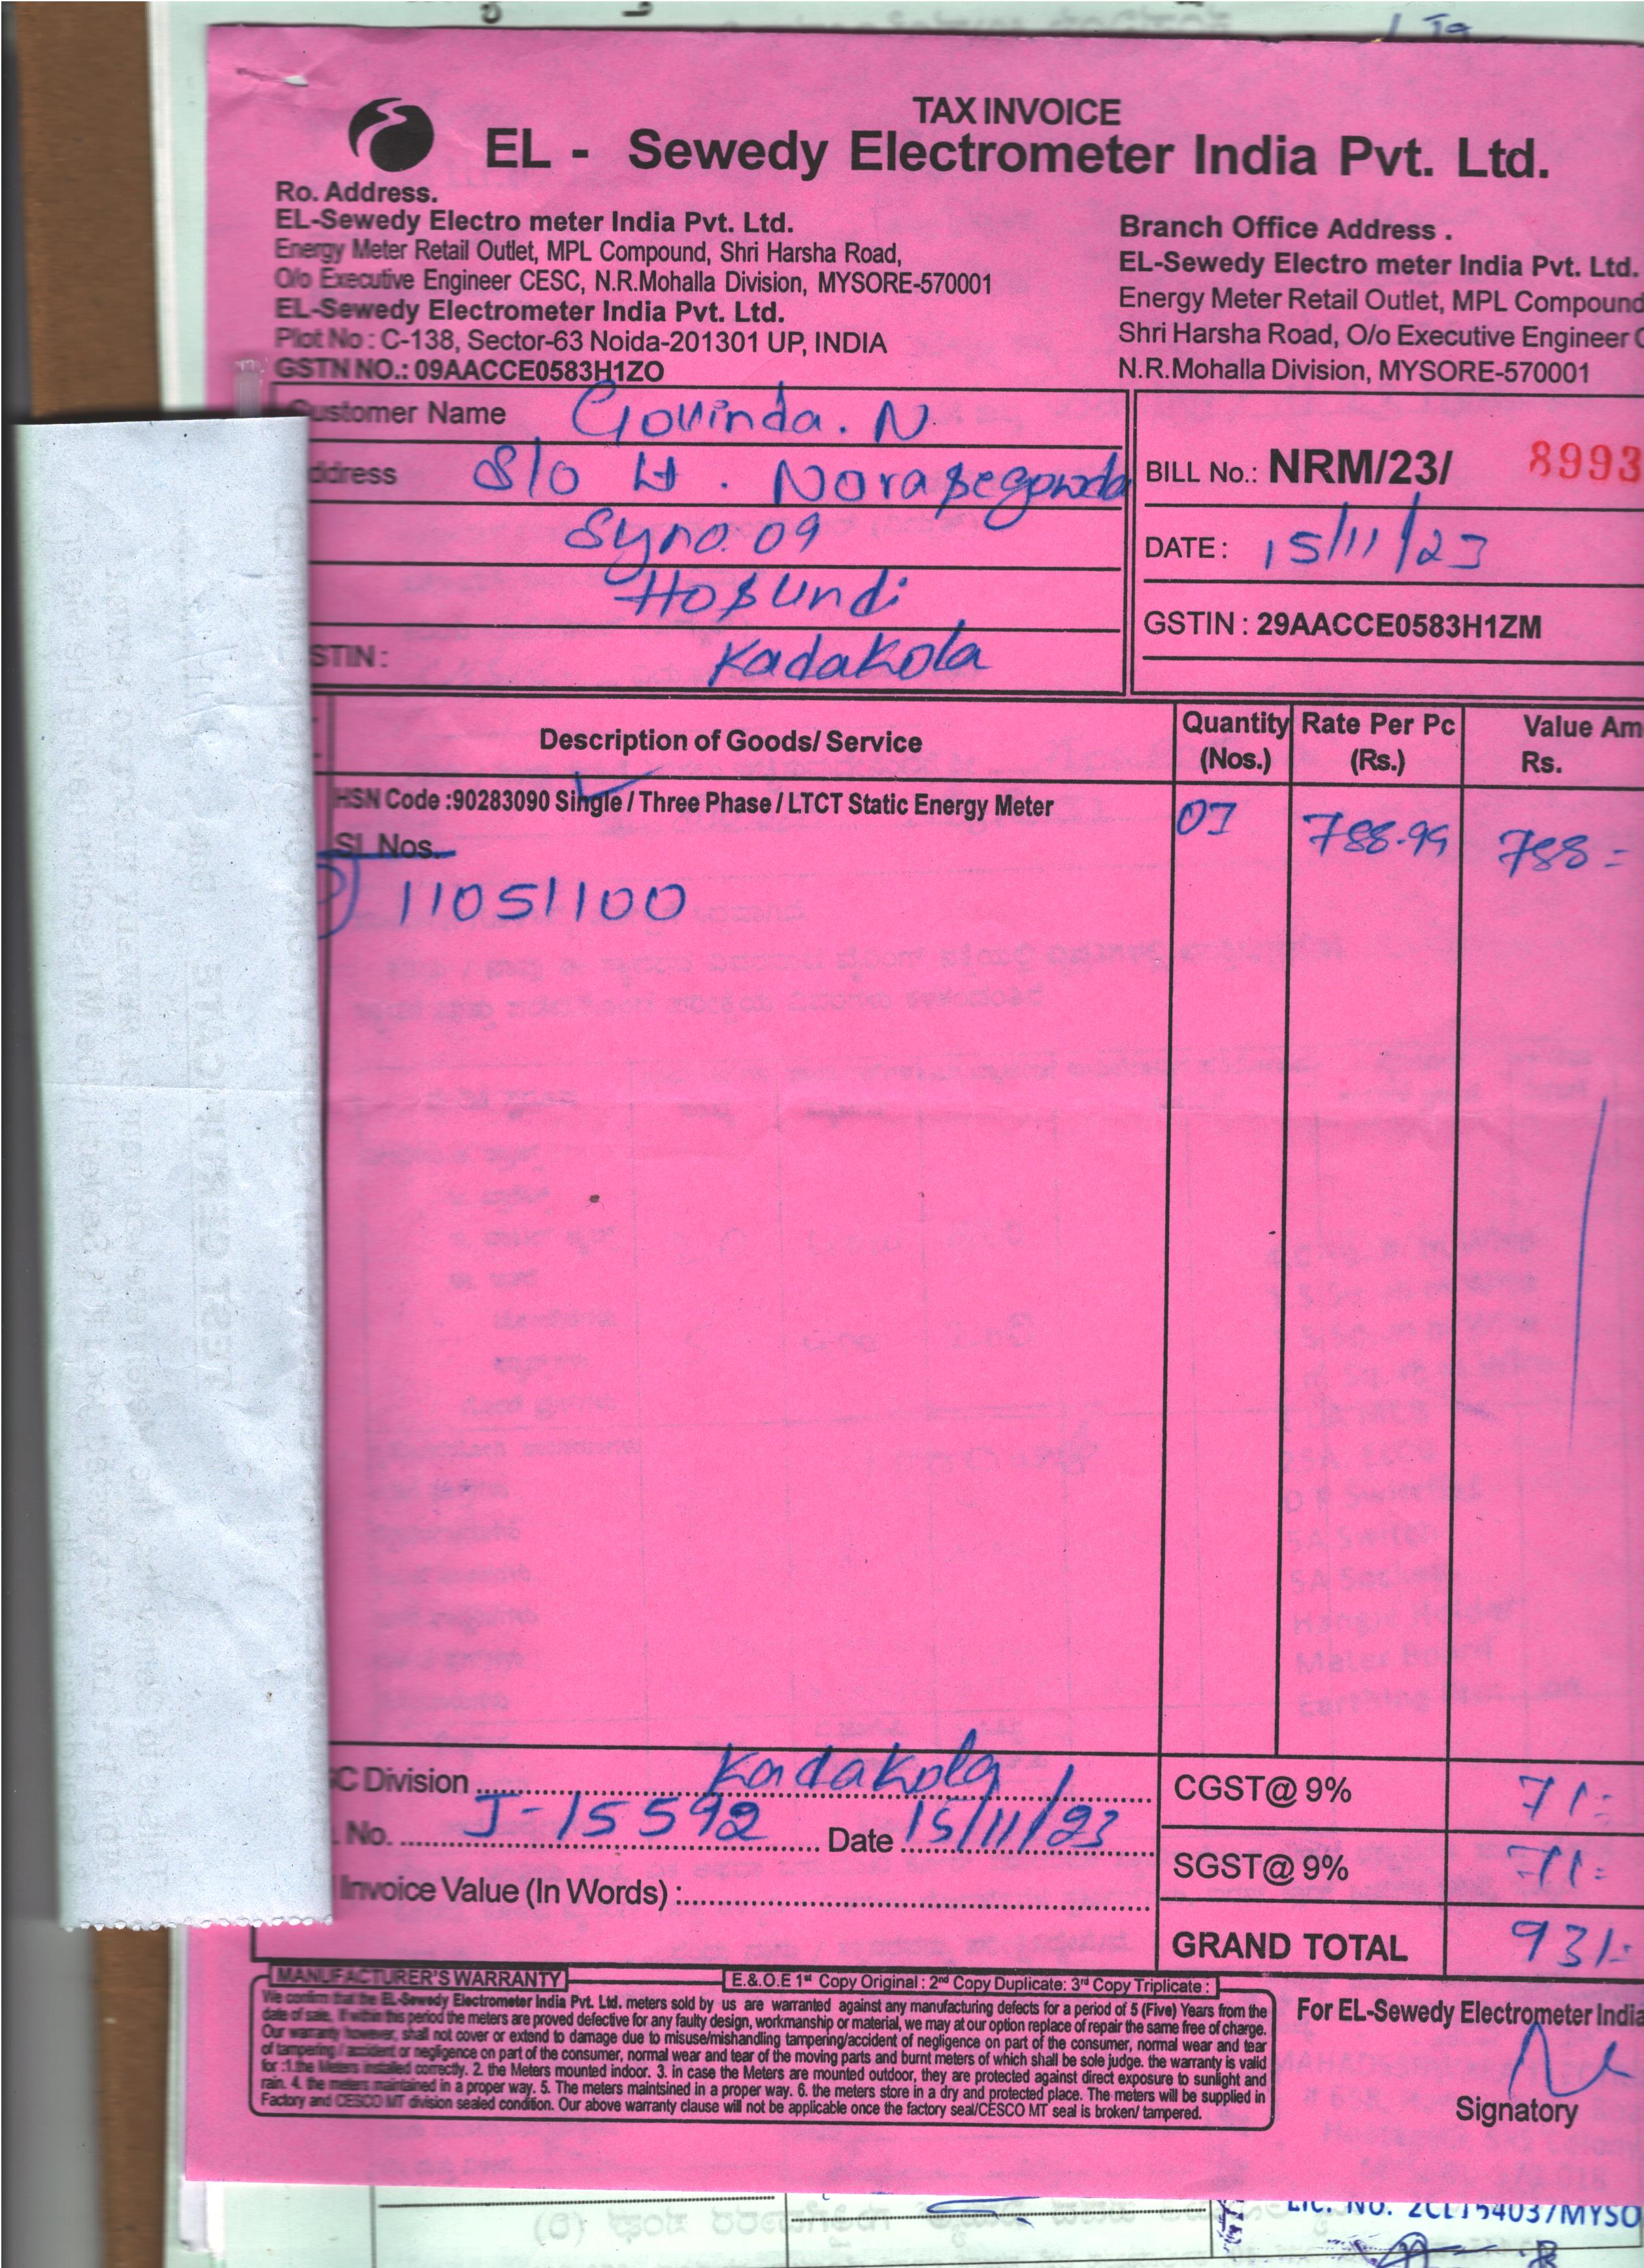 TAX INVOICE
EL - Sewedy Electrometer India Pvt. Ltd.
Ro. Address.
EL-Sewedy Electro meter India Pvt. Ltd.
Energy Meter Retail Outlet, MPL Compound, Shri Harsha Road,
O/o Executive Engineer CESC, N.R.Mohalla Division, MYSORE-570001
EL-Sewedy Electrometer India Pvt. Ltd.
Plot No : C-138, Sector-63 Noida-201301 UP, INDIA
GSTN NO.: 09AACCE0583H1ZO
Branch Office Address .
EL-Sewedy Electro meter India Pvt. Ltd.
Energy Meter Retail Outlet, MPL Compound
Shri Harsha Road, O/o Executive Engineer
N.R.Mohalla Division, MYSORE-570001
Customer Name Govinda. N
ddress S/o Lt. Narasegowda
Syno. 09
Hosundi
STIN : Kadakola
BILL No.: NRM/23/ 8993
DATE : 15/11/23
GSTIN : 29AACCE0583H1ZM
Description of Goods/ Service
Quantity (Nos.)
Rate Per Pc (Rs.)
Value Am
Rs.
HSN Code :90283090 Single / Three Phase / LTCT Static Energy Meter
01 788.99 788=
SI. Nos.
11051100
C Division Kadakola
No. J-15592 Date 15/11/23
Invoice Value (In Words) :
CGST@ 9% 71=
SGST@ 9% 71=
GRAND TOTAL 931=
MANUFACTURER'S WARRANTY
E.&.O.E 1st Copy Original : 2nd Copy Duplicate: 3rd Copy Triplicate :
We confirm that the EL-Sewedy Electrometer India Pvt. Ltd. meters sold by us are warranted against any manufacturing defects for a period of 5 (Five) Years from the
date of sale. If within this period the meters are proved defective for any faulty design, workmanship or material, we may at our option replace of repair the same free of charge.
Our warranty however, shall not cover or extend to damage due to misuse/mishandling tampering/accident of negligence on part of the consumer, normal wear and tear
of tampering / accident or negligence on part of the consumer, normal wear and tear of the moving parts and burnt meters of which shall be sole judge. the warranty is valid
for :1.the Meters installed correctly. 2. the Meters mounted indoor. 3. in case the Meters are mounted outdoor, they are protected against direct exposure to sunlight and
rain. 4. the meters maintained in a proper way. 5. The meters maintsined in a proper way. 6. the meters store in a dry and protected place. The meters will be supplied in
Factory and CESCO MT division sealed condition. Our above warranty clause will not be applicable once the factory seal/CESCO MT seal is broken/ tampered.
For EL-Sewedy Electrometer India
Signatory